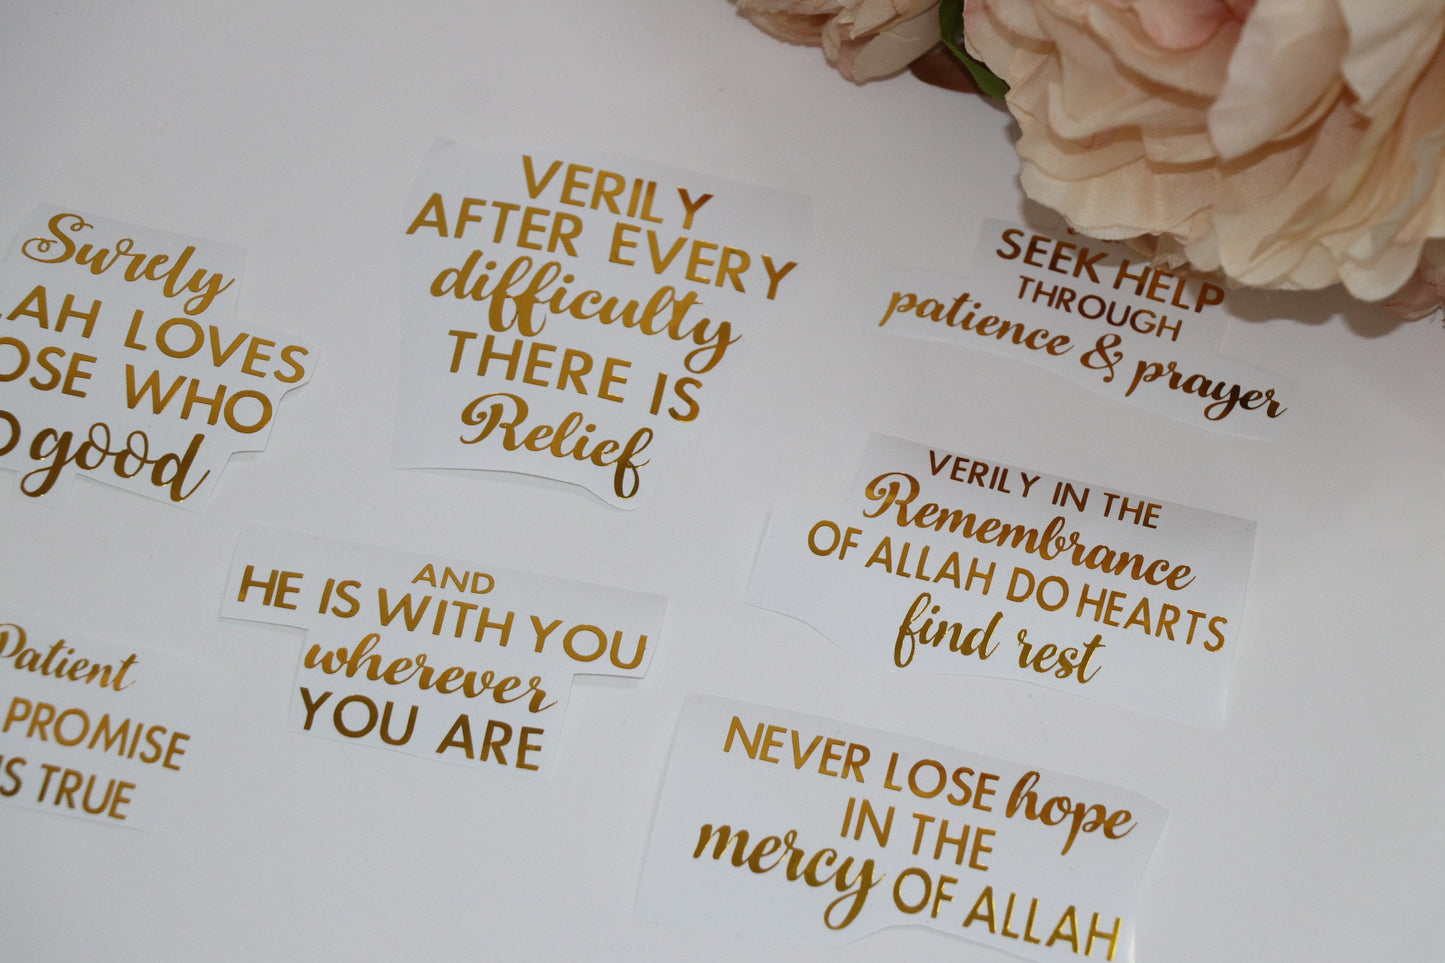 Surely
LAH LOVES
OSE WHO
good
VERILY
AFTER EVERY
difficulty
THERE IS
Relief
SEEK HELP
THROUGH
patience & prayer
VERILY IN THE
Remembrance
OF ALLAH DO HEARTS
find rest
AND
HE IS WITH YOU
wherever
YOU ARE
Patient
PROMISE
IS TRUE
NEVER LOSE hope
IN THE
mercy OF ALLAH